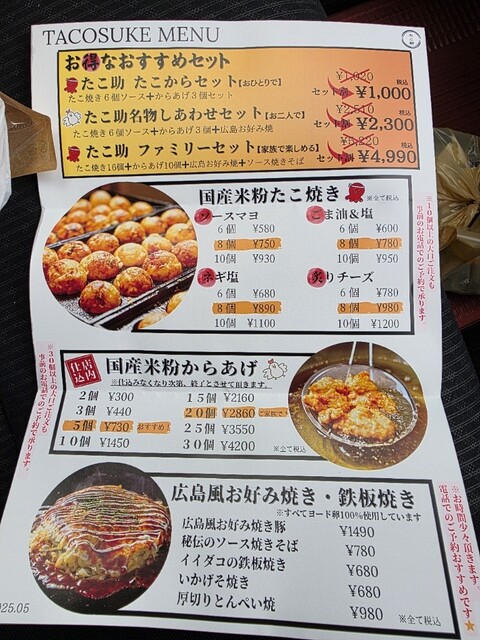 TACOSUKE MENU
お得なおすすめセット
たこ助 たこからセット【おひとりで】
たこ焼き6個ソース+からあげ3個セット
¥1,020
セット割 ¥1,000 税込
たこ助名物しあわせセット【お二人で】
たこ焼き6個+からあげ3個+広島お好み焼
¥2,510
セット割 ¥2,300 税込
たこ助 ファミリーセット【家族で楽しめる】
たこ焼き16個+からあげ10個+広島お好み焼+ソース焼きそば
セット割 ¥4,990 税込
国産米粉たこ焼き
※全て税込
ソースマヨ
6個 ¥580
8個 ¥750
10個 ¥930
ごま油&塩
6個 ¥600
8個 ¥780
10個 ¥950
ネギ塩
6個 ¥680
8個 ¥890
10個 ¥1100
炙りチーズ
6個 ¥780
8個 ¥980
10個 ¥1200
※10個以上の大口ご注文も
事前のお電話でのご予約で承ります。
店内仕込
国産米粉からあげ
※仕込みなくなり次第、終了とさせて頂きます。
2個 ¥300
3個 ¥440
5個 ¥730 おすすめ
10個 ¥1450
15個 ¥2160
20個 ¥2860 ご家族で
25個 ¥3550
30個 ¥4200
※全て税込
※30個以上の大口ご注文も
事前のお電話でのご予約で承ります。
広島風お好み焼き・鉄板焼き
※すべてヨード卵100%使用しています
広島風お好み焼き豚 ¥1490
秘伝のソース焼きそば ¥780
イイダコの鉄板焼き ¥680
いかげそ焼き ¥680
厚切りとんぺい焼 ¥980
※全て税込
※お時間少々頂きます。
電話でのご予約おすすめです★
025.05